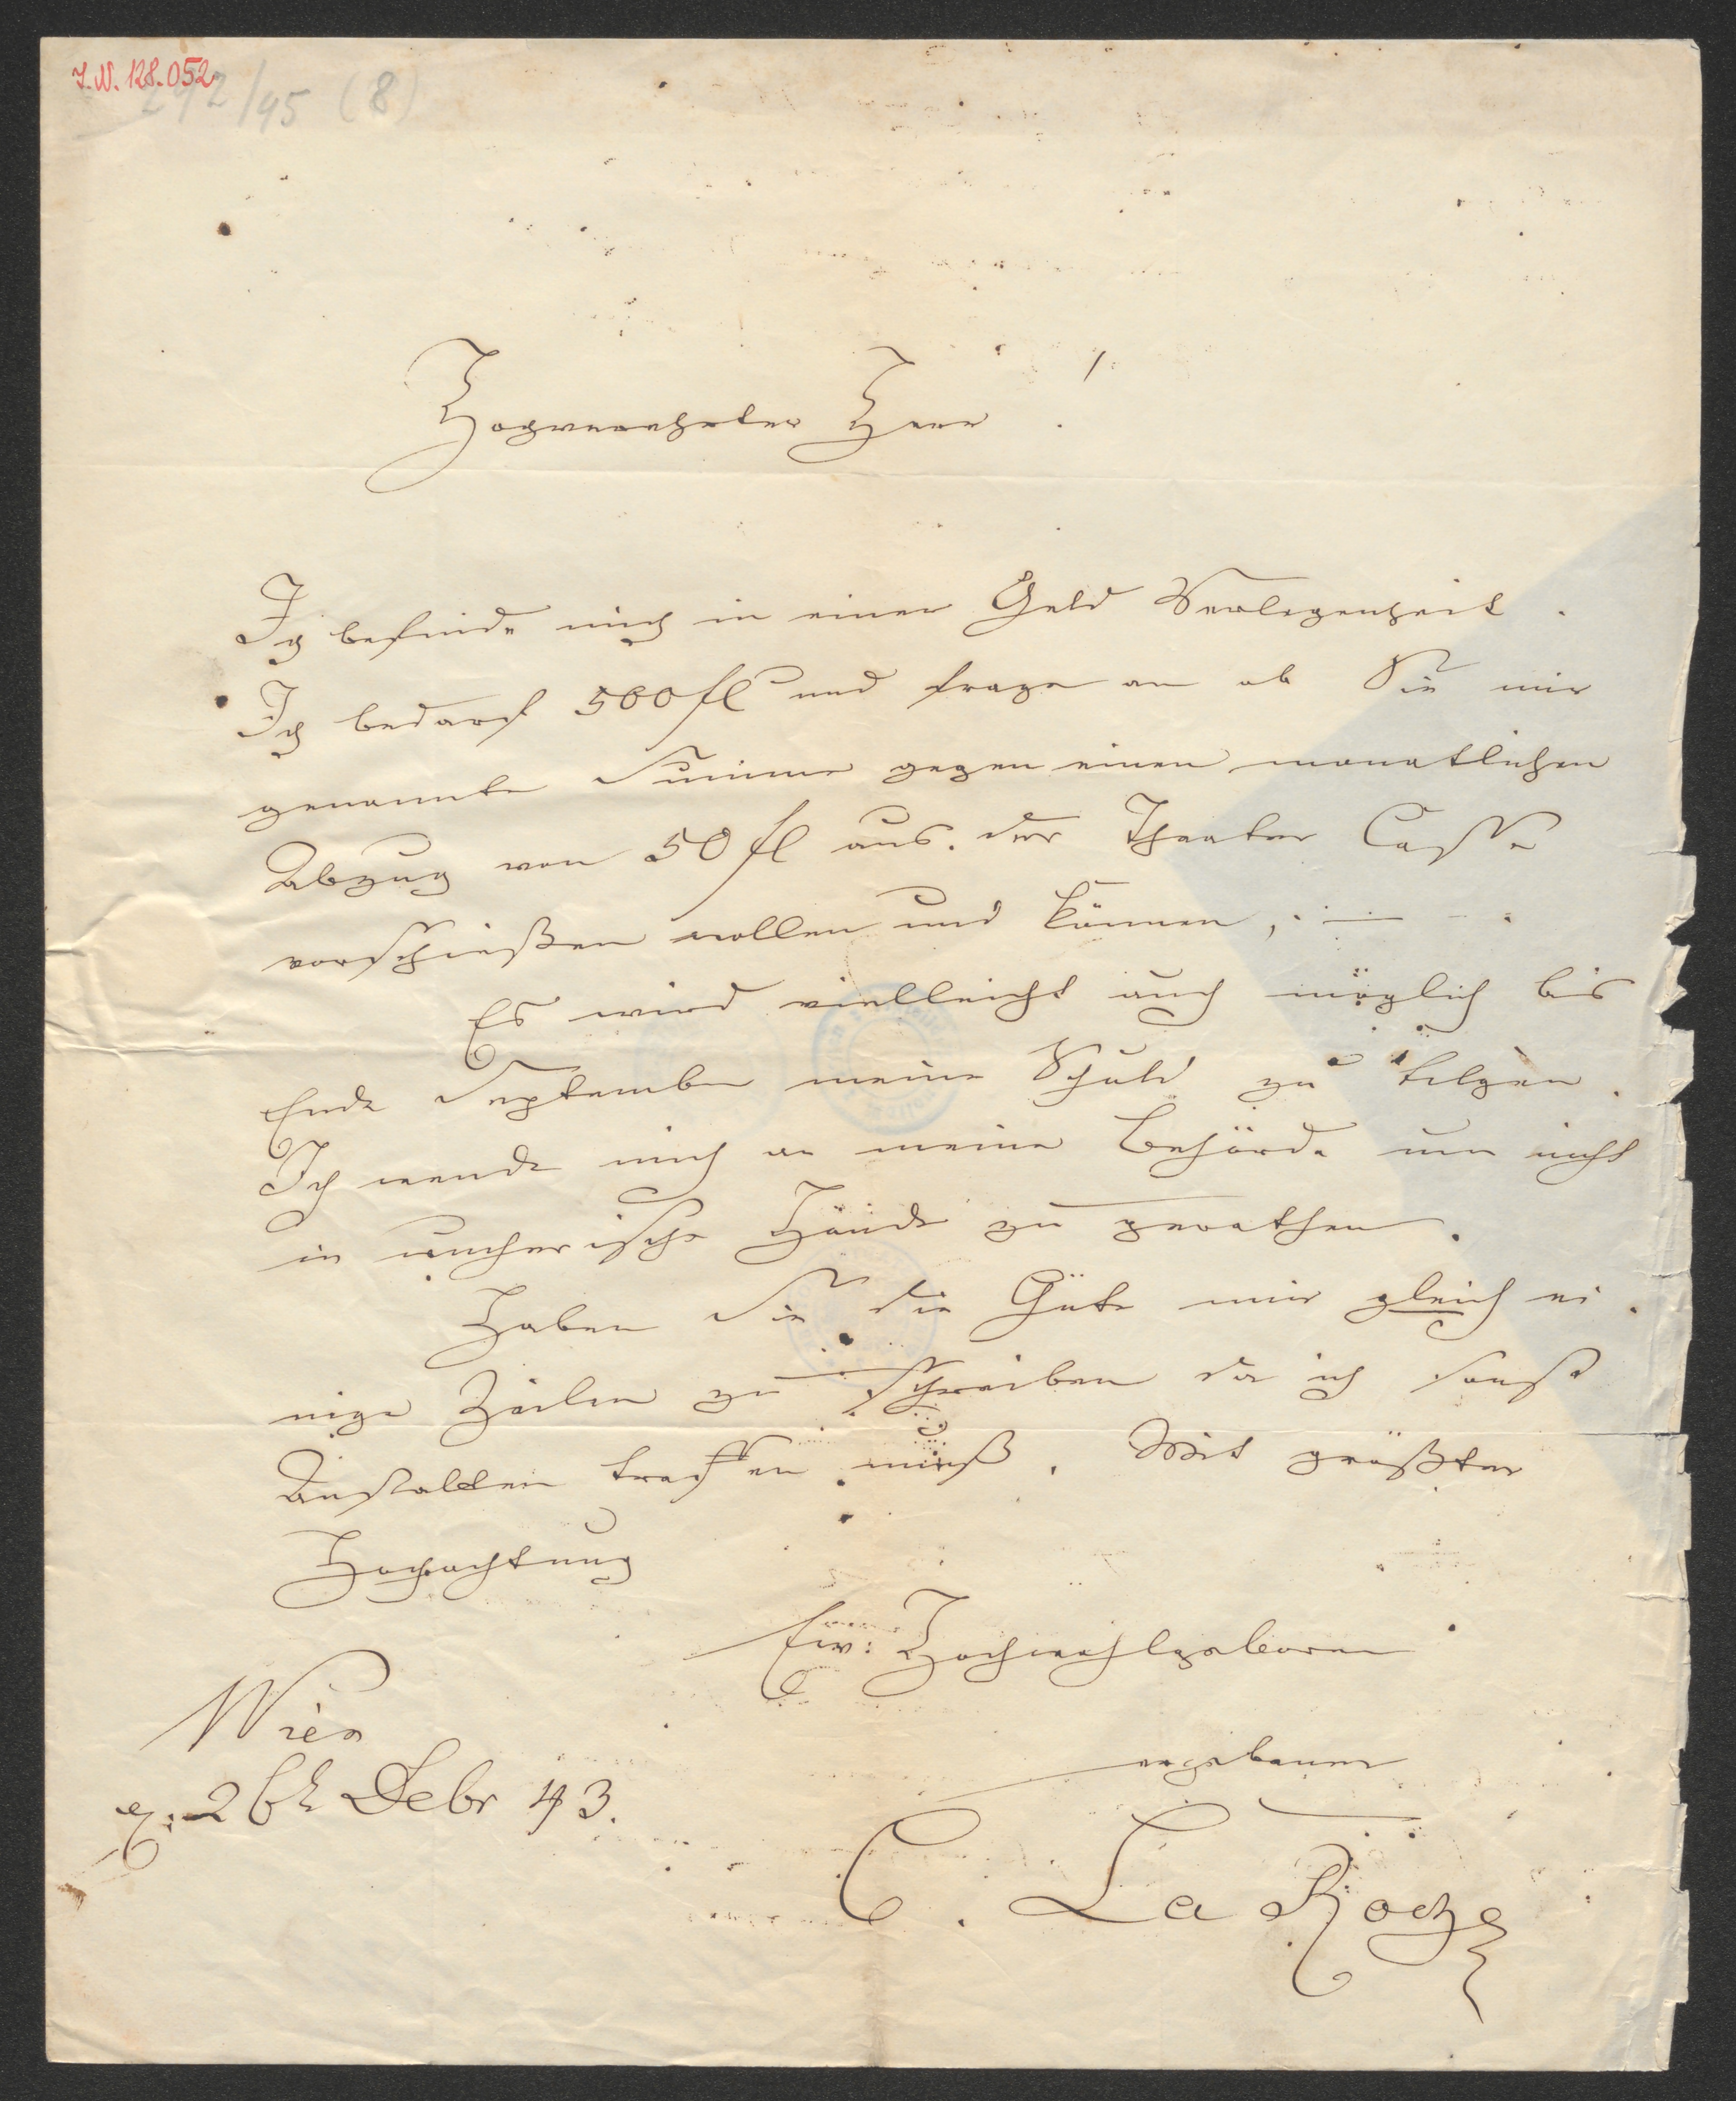 I.N. 128.052
292/45 (8)
Hochverehrter Herr !
Ich befinde mich in einer Geld Verlegenheit.
Ich bedarf 500 fl und frage an ob Sie mir
genannte Summe gegen einen monatlichen
Abzug von 50 fl aus der Theater Casse
vorschießen wollen und können,. — -.
Es wird vielleicht auch möglich bis
Ende September meine Schuld zu tilgen.
Ich wende mich an meine Behörde um nicht
in wucherische Hände zu gerathen.
Haben Sie die Güte mir gleich ei.
nige Zeilen zu schreiben da ich sonst
Anstalten treffen muß. Mit größter
Hochachtung
Ew: Hochwohlgeboren
Wien
ergebener
26t Debr 43.
C. La Roche